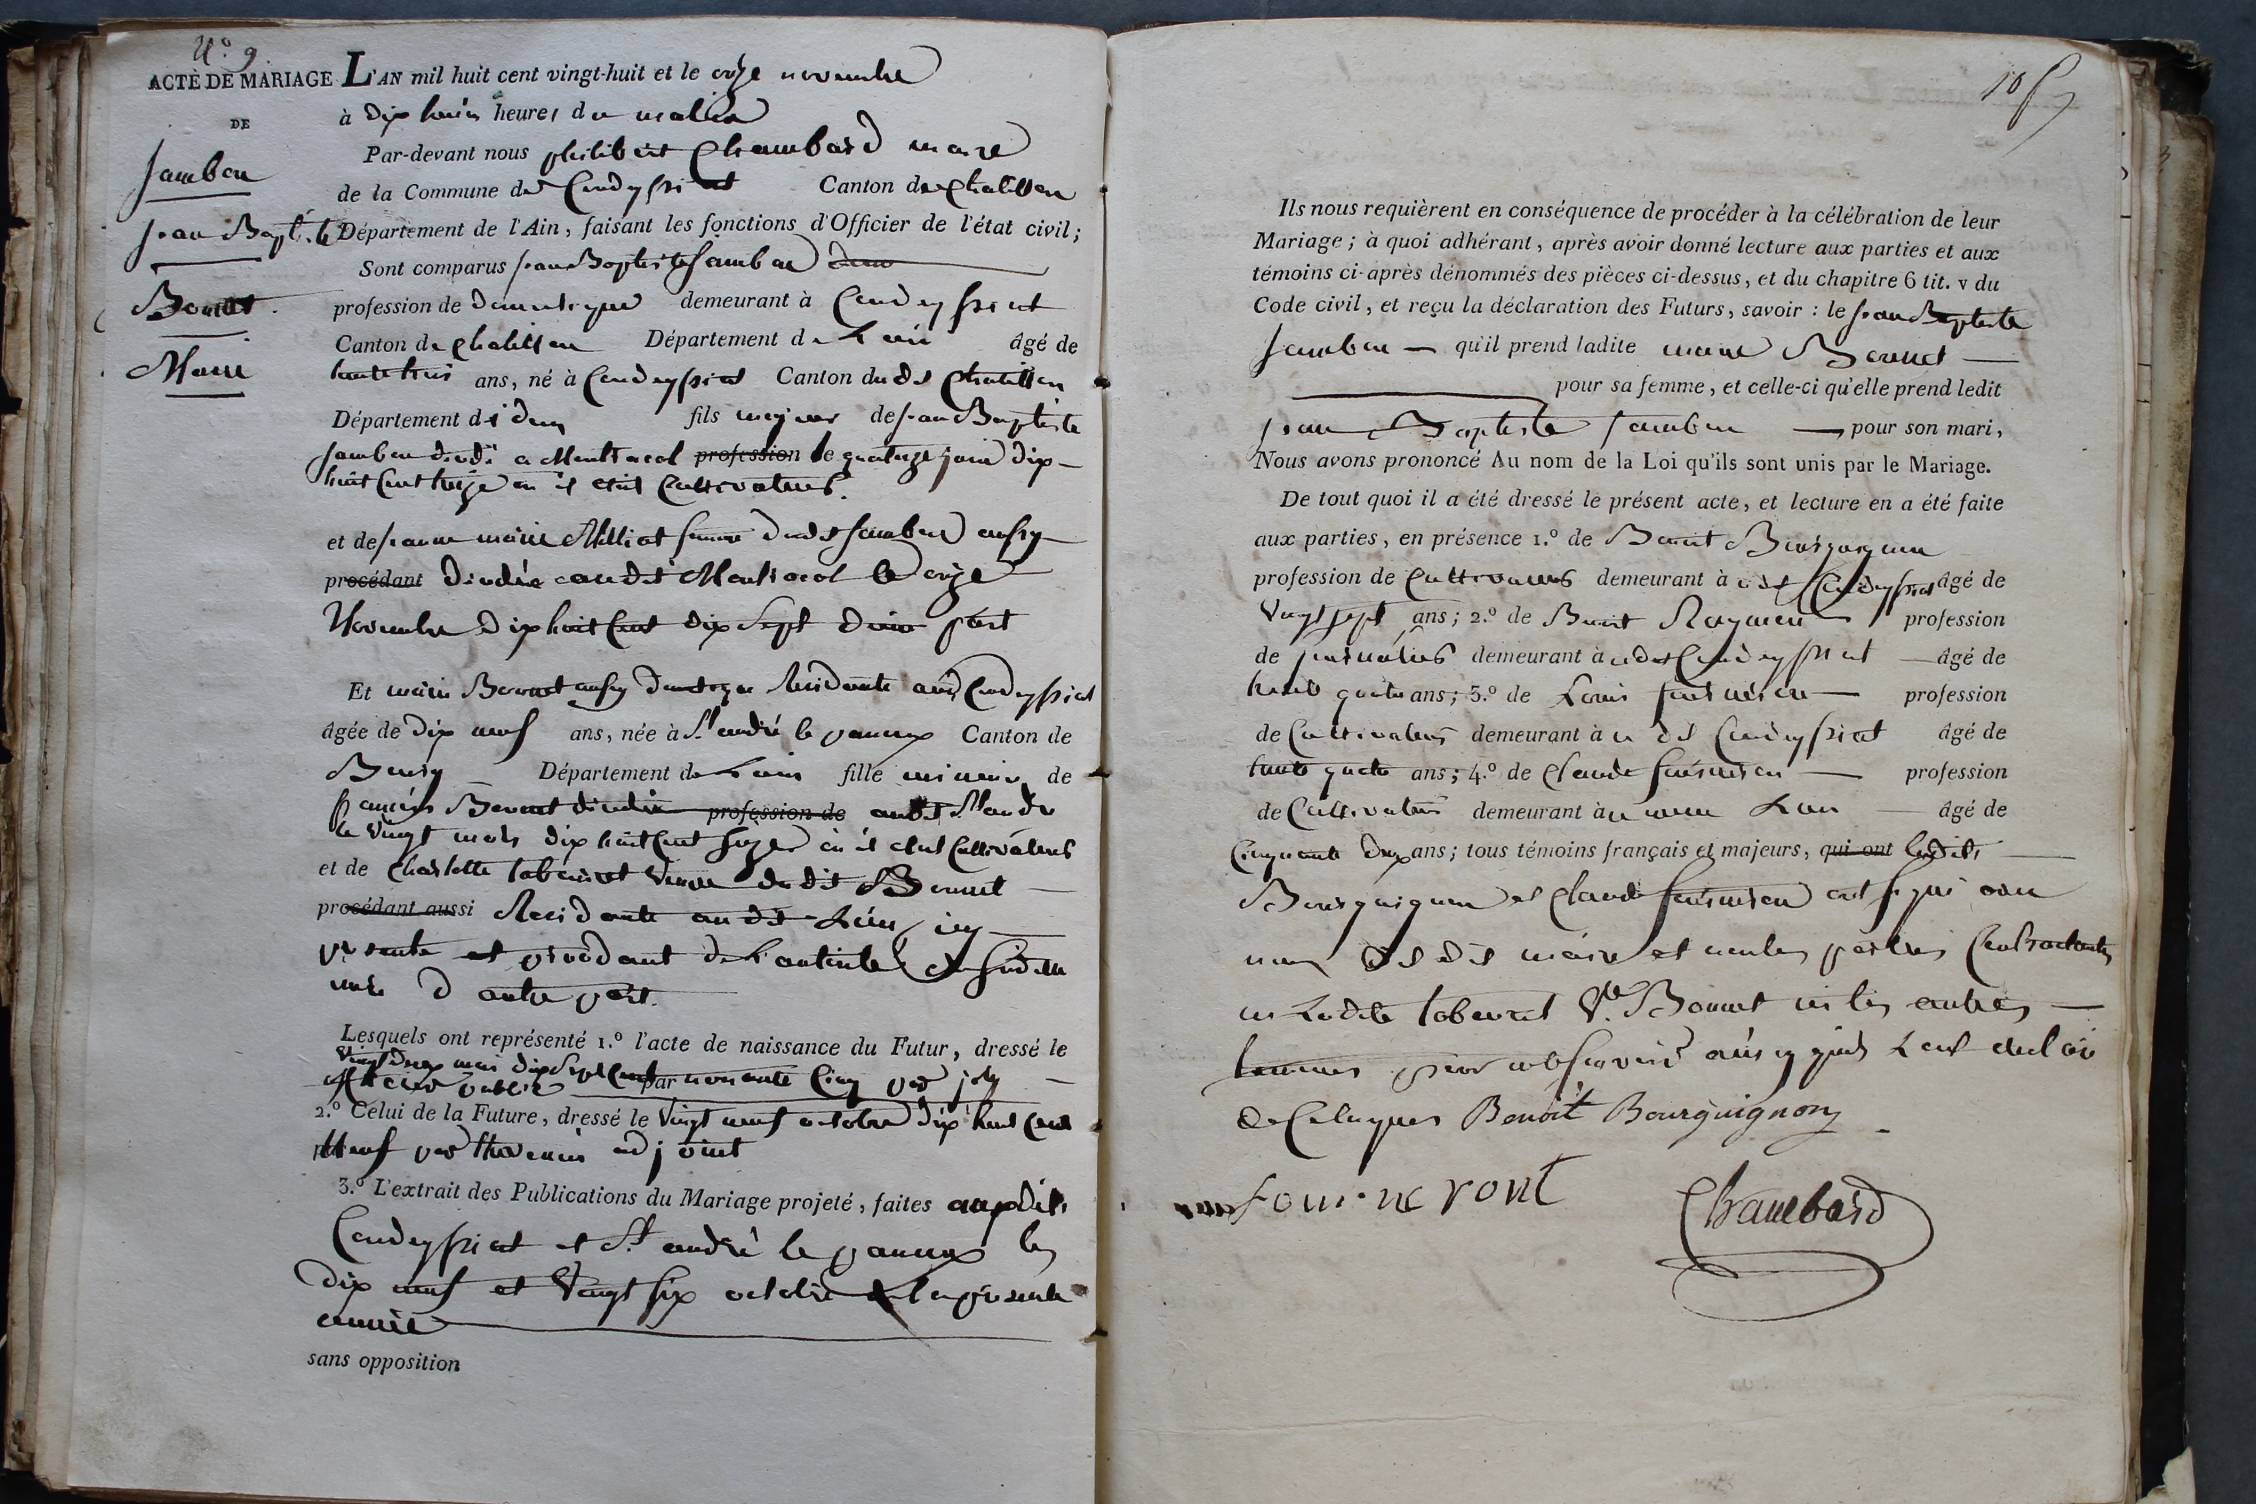 N.° 9.
ACTE DE MARIAGE L'AN mil huit cent vingt-huit et le onze novembre
DE
à dix heures du matin
Par-devant nous philibert Chambard maire
Jambon
de la Commune de Condeyssiat Canton de Chatillon
Jean Baptiste Département de l'Ain, faisant les fonctions d'Officier de l'état civil;
Sont comparus Jean Baptiste Jambon
Bonnet.
profession de domestique demeurant à Condeyssiat
Canton de Chatillon Département de L'ain âgé de
Marie
trente trois ans, né à Condeyssiat Canton dudit Chatillon
Département d'idem fils majeur de Jean Baptiste
Jambon décédé a Montracol profession le quatorze juin dix-
huit Cent treize où il etait Cultivateur.
et de Jeanne marie Milliat femme dudit Jambon aussy
procédant décédée audit Montracol le onze
Novembre dix huit Cent dix Sept d'une part
Et marie Bonnet aussy domestique Residante audit Condeyssiat
âgée de dix neuf ans, née à St. andré le panoux Canton de
Bourg Département de L'ain fille mineure de
françois Bonnet décédé profession de audit St. andré
le vingt mars dix huit Cent seize où il etait Cultivateur
et de Charlotte Tabouret Veuve dudit Bonnet
procédant aussi Residante audit Lieu, icy
présente et procédant de L'autorité de sadite
mère d'autre part.
Lesquels ont représenté 1.° l'acte de naissance du Futur, dressé le
Vingt deux mai dix Sept Cent par nonante Cinq par joly
officier public
2.° Celui de la Future, dressé le vingt neuf octobre dix huit Cent
Neuf par Thevenin adjoint
3.° L'extrait des Publications du Mariage projeté, faites auxdits
Condeyssiat et St. andré le panoux les
dix neuf et vingt six octobre de la présente
année
sans opposition
Ils nous requièrent en conséquence de procéder à la célébration de leur
Mariage; à quoi adhérant, après avoir donné lecture aux parties et aux
témoins ci-après dénommés des pièces ci-dessus, et du chapitre 6 tit. v du
Code civil, et reçu la déclaration des Futurs, savoir: le Jean Baptiste
Jambon qu'il prend ladite marie Bonnet
pour sa femme, et celle-ci qu'elle prend ledit
Jean Baptiste Jambon pour son mari,
Nous avons prononcé Au nom de la Loi qu'ils sont unis par le Mariage.
De tout quoi il a été dressé le présent acte, et lecture en a été faite
aux parties, en présence 1.° de Benoit Bourguignon
profession de Cultivateur demeurant à udit Condeyssiat âgé de
vingt sept ans; 2.° de Benoit Raymond profession
de journalier demeurant à udit Condeyssiat âgé de
trente quatre ans; 3.° de Louis fourneron profession
de Cultivateur demeurant à udit Condeyssiat âgé de
trente quatre ans; 4.° de Claude fourneron profession
de Cultivateur demeurant à u meme Lieu âgé de
Cinquante deux ans; tous témoins français et majeurs, qui ont lesdits
Bourguignon et Claude fourneron ont signé avec
nous dit maire et non les parties Contractantes
ni Ladite Tabouret Ve. Bonnet ni les autres
temoins pour ne Sçavoir ainsy qu'ils L'ont déclaré
de Ce enquis Benoit Bourguignon
fourneront Chambard